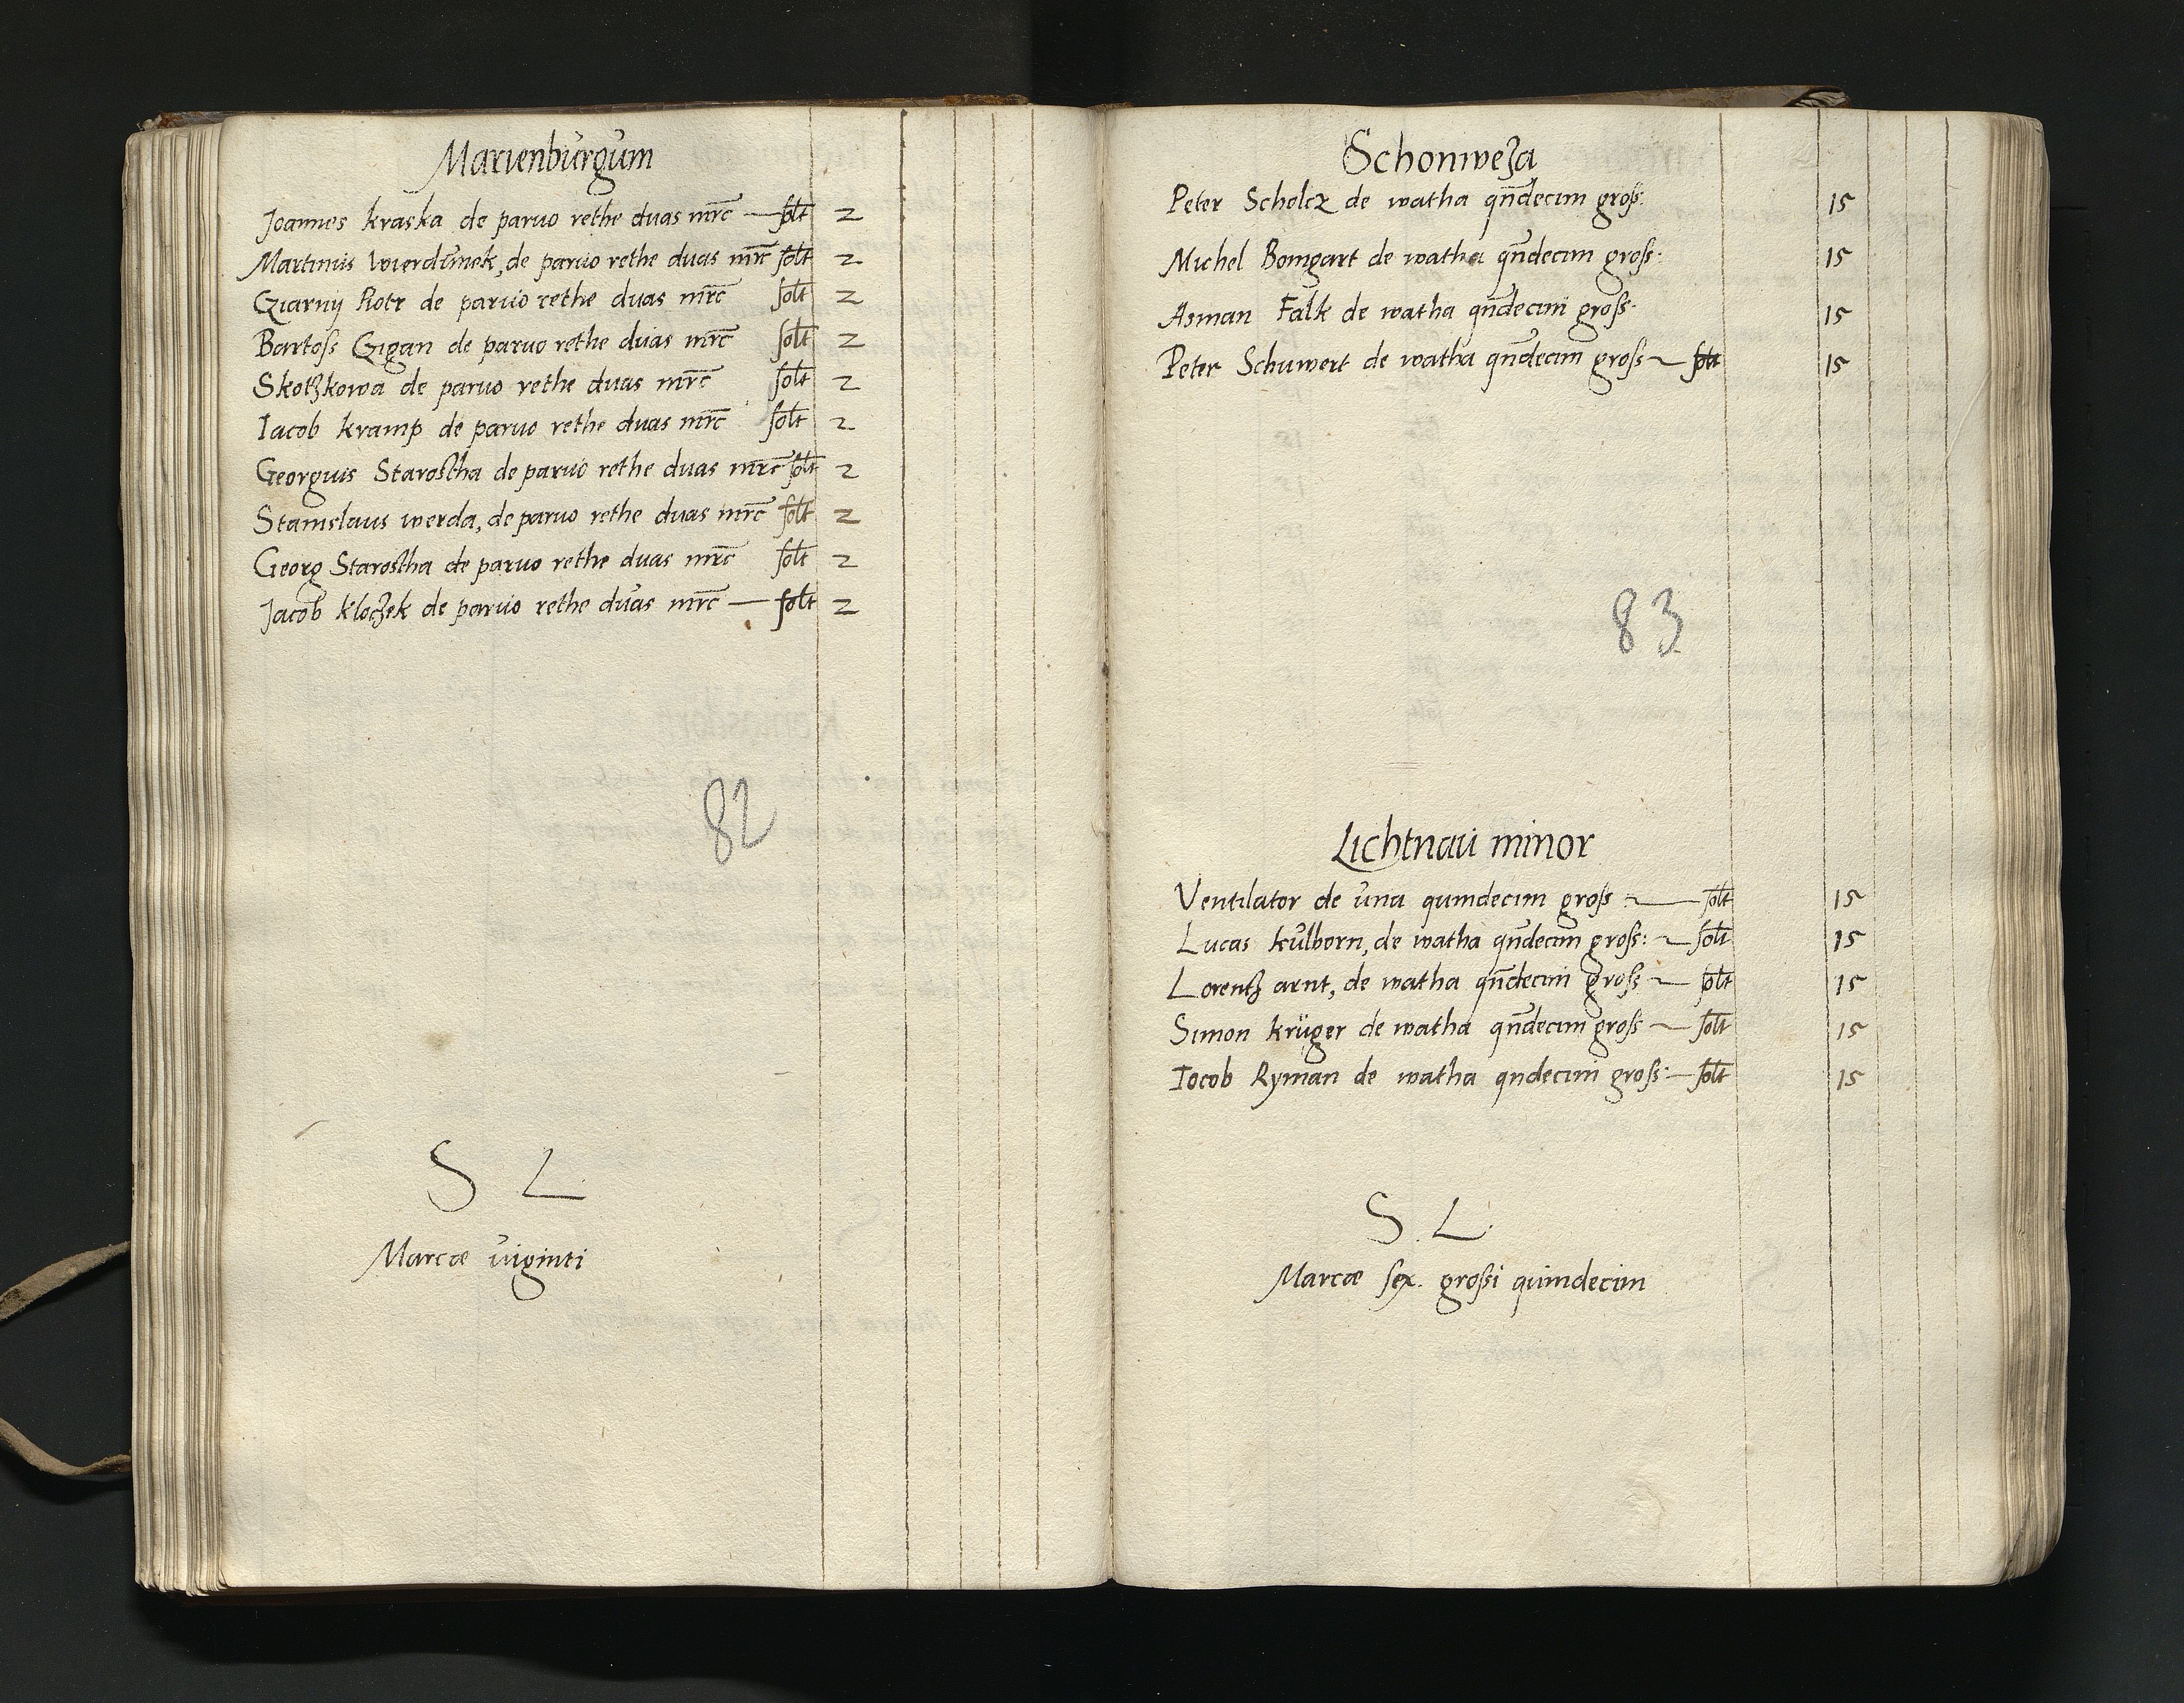 Marienburgum
Joannes kraska de paruo rethe duas mrc — solt 2
Martinus Wierdunek, de paruo rethe duas mrc solt 2
Cziarny Piotr de paruo rethe duas mrc solt 2
Bartoss Gigan de paruo rethe duas mrc solt 2
Skotzkowa de paruo rethe duas mrc solt 2
Iacob kramp de paruo rethe duas mrc solt 2
Georgius Starostha de paruo rethe duas mrc solt 2
Stanislaus werda, de paruo rethe duas mrc solt 2
Georg Starostha de paruo rethe duas mrc solt 2
Jacob kloczek de paruo rethe duas mrc — solt 2
82
S L
Marcæ viginti
Schonweza
Peter Scholcz de watha qndecim gross: 15
Michel Bomgart de watha qndecim gross: 15
Asman Falk de watha qndecim gross: 15
Peter Schuwert de watha qndecim gross — solt 15
83
Lichtnau minor
Ventilator de una quindecim gross — solt 15
Lucas kulborn, de watha qndecim gross: — solt 15
Lorentz arnt, de watha qndecim gross — solt 15
Simon krüger de watha qndecim gross — solt 15
Iocob Ryman de watha qndecim gross: — solt 15
S. L.
Marcæ sex. grossi quindecim